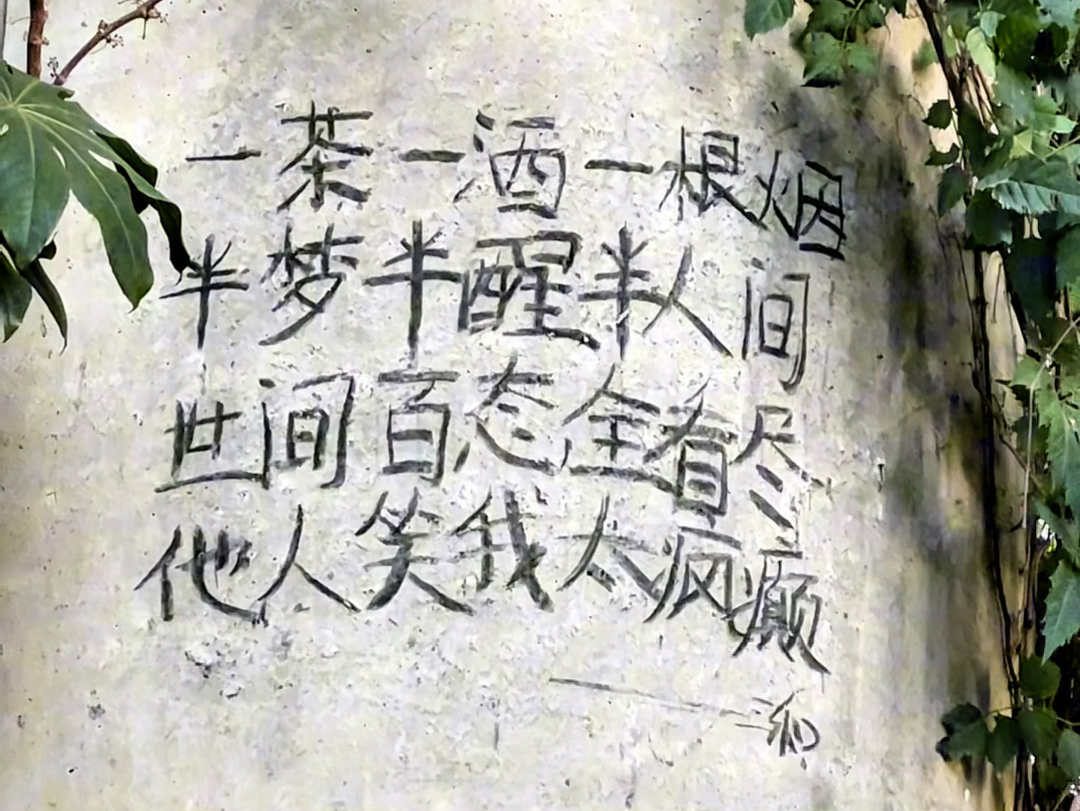 一茶一酒一根烟
半梦半醒半人间
世间百态全看尽
他人笑我太疯癫